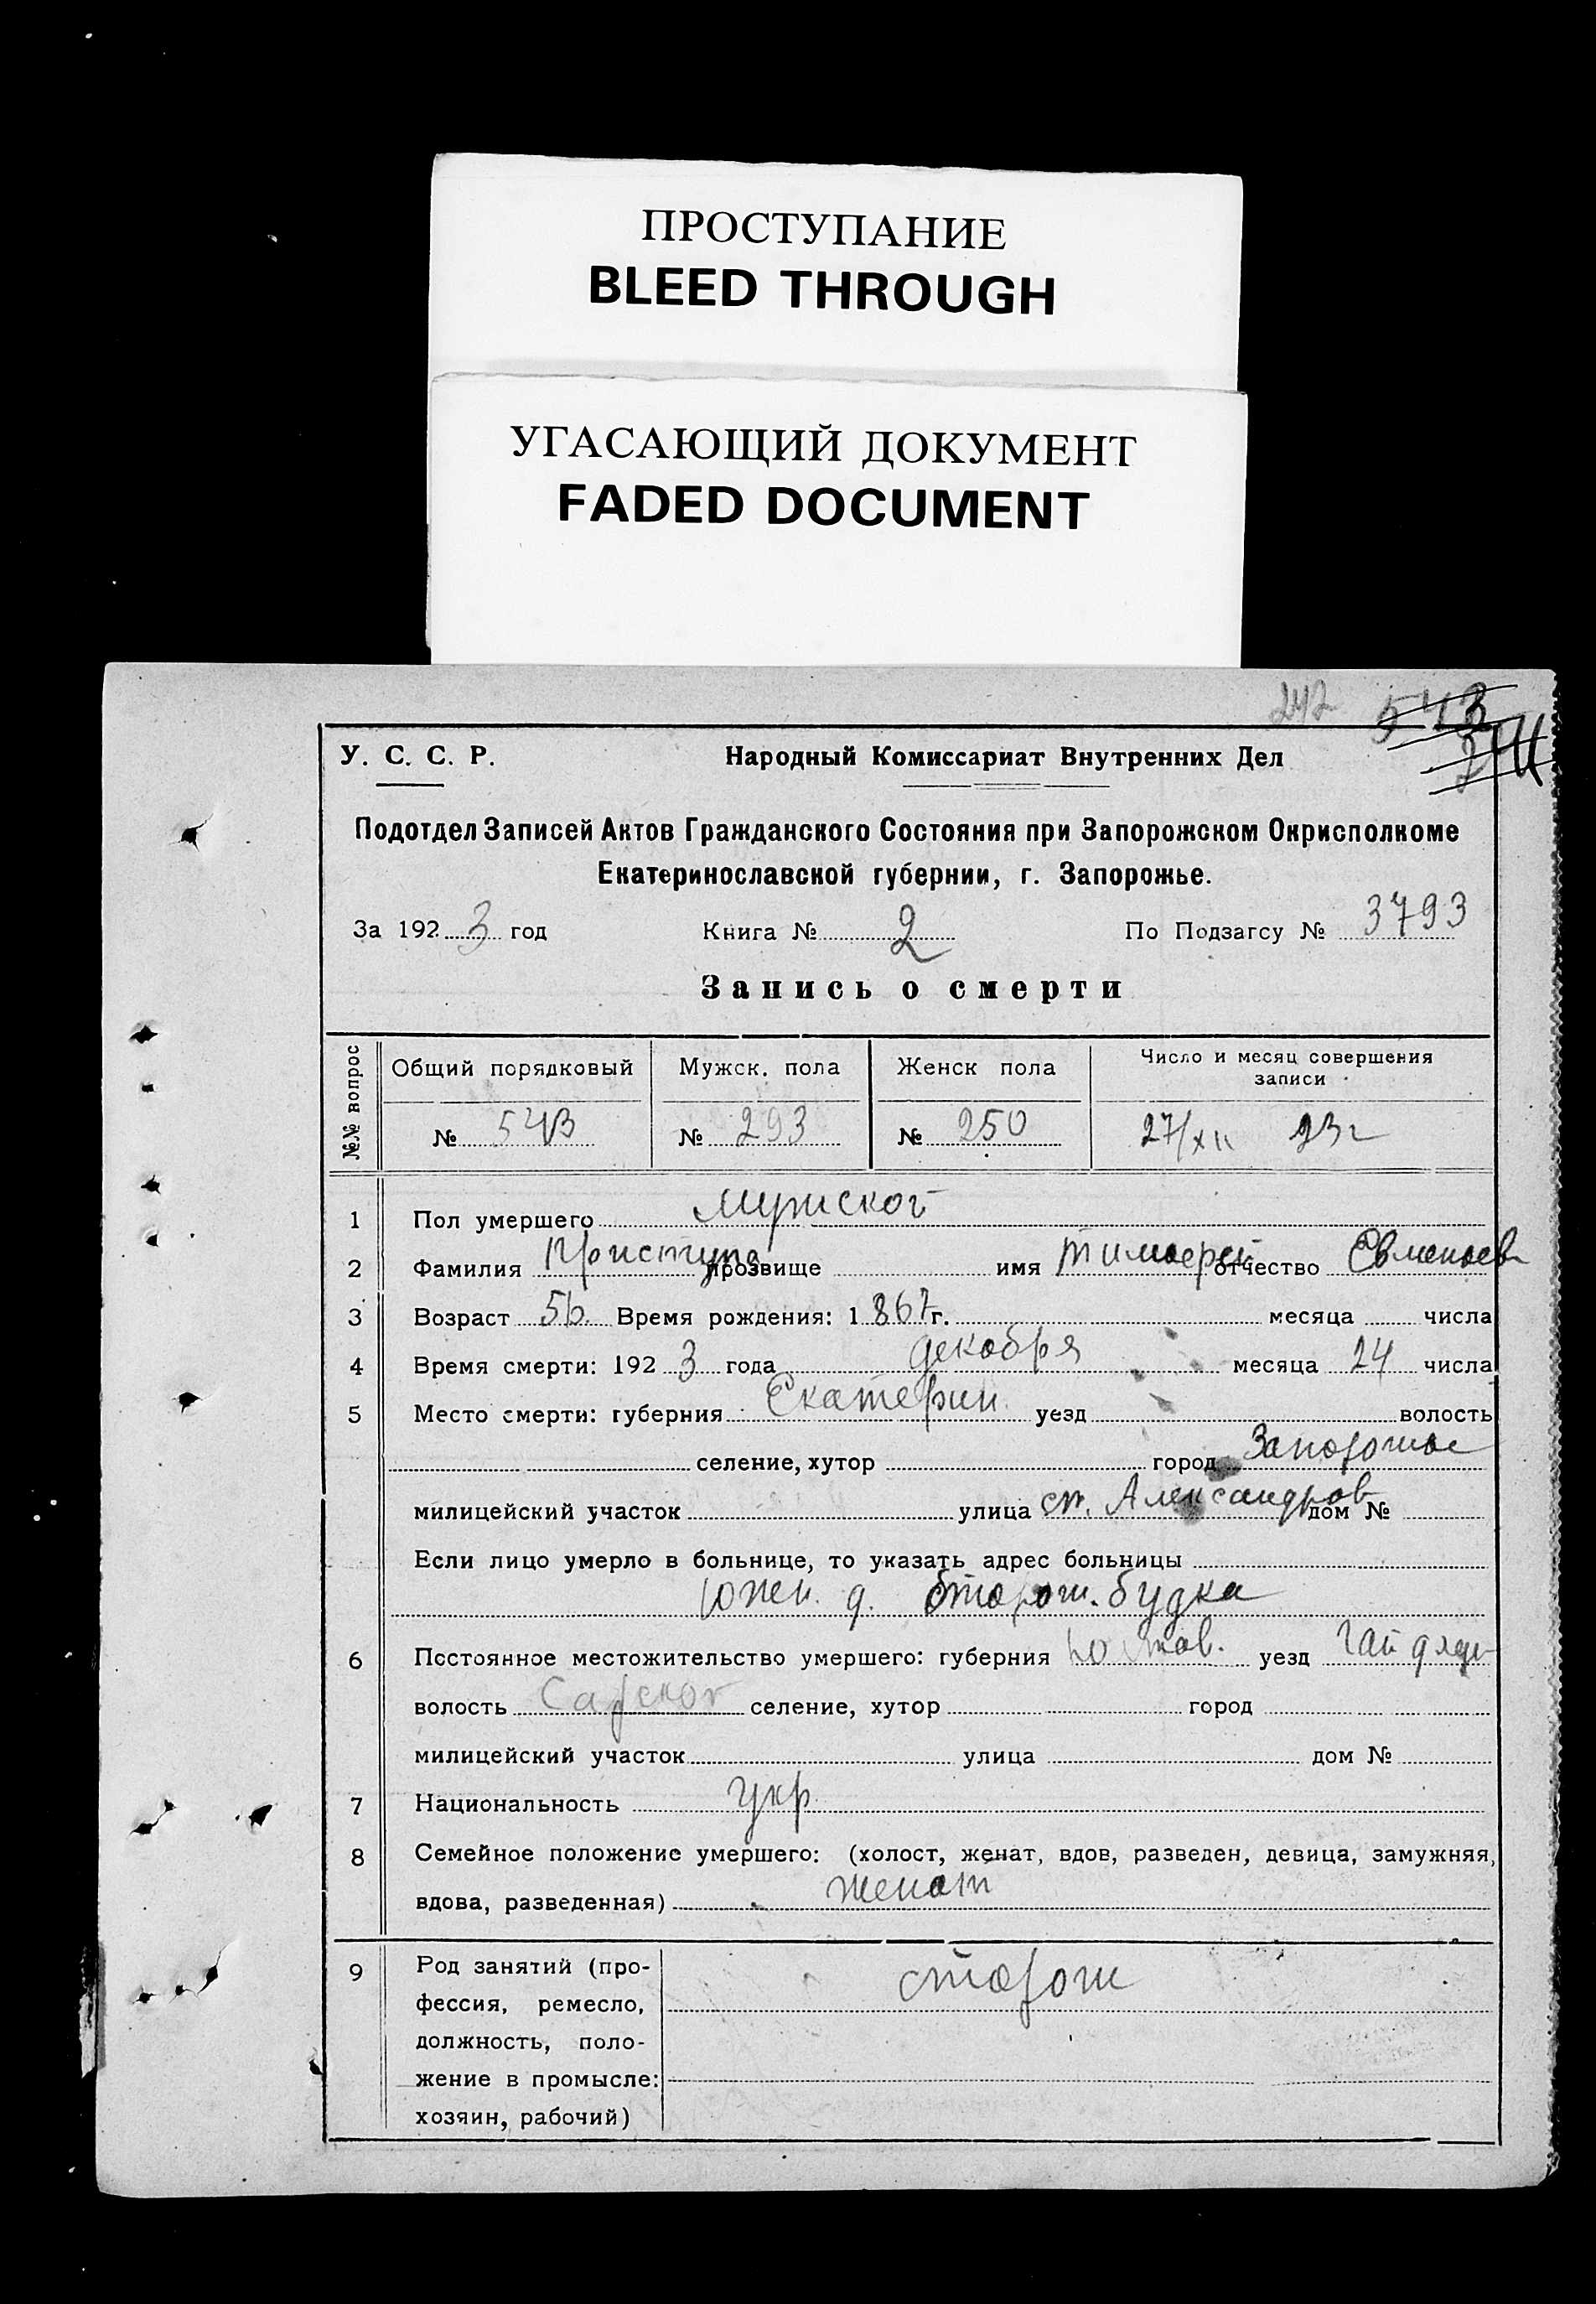 ПРОСТУПАНИЕ
BLEED THROUGH
УГАСАЮЩИЙ ДОКУМЕНТ
FADED DOCUMENT
242 543
У. С. С. Р. Народный Комиссариат Внутренних Дел
Подотдел Записей Актов Гражданского Состояния при Запорожском Окрисполкоме
Екатеринославской губернии, г. Запорожье.
За 1923 год Книга № 2 По Подзагсу № 3793
Запись о смерти
№№ вопрос
Общий порядковый Мужск. пола Женск пола Число и месяц совершения
записи
№ 543 № 293 № 250 27/XII 23г
1 Пол умершего мужской
2 Фамилия Приступа прозвище имя Тимофей отчество Евменьев
3 Возраст 56 Время рождения: 1867г. месяца числа
4 Время смерти: 1923 года декабря месяца 24 числа
5 Место смерти: губерния Екатерин. уезд волость
селение, хутор город Запорожье
милицейский участок улица ст. Александров дом №
Если лицо умерло в больнице, то указать адрес больницы
Южн. д. сторож. будка
6 Постоянное местожительство умершего: губерния уезд
волость Сарской селение, хутор город
милицейский участок улица дом №
7 Национальность укр
8 Семейное положение умершего: (холост, женат, вдов, разведен, девица, замужняя,
вдова, разведенная) женат
9 Род занятий (про- сторож
фессия, ремесло,
должность, поло-
жение в промысле:
хозяин, рабочий)